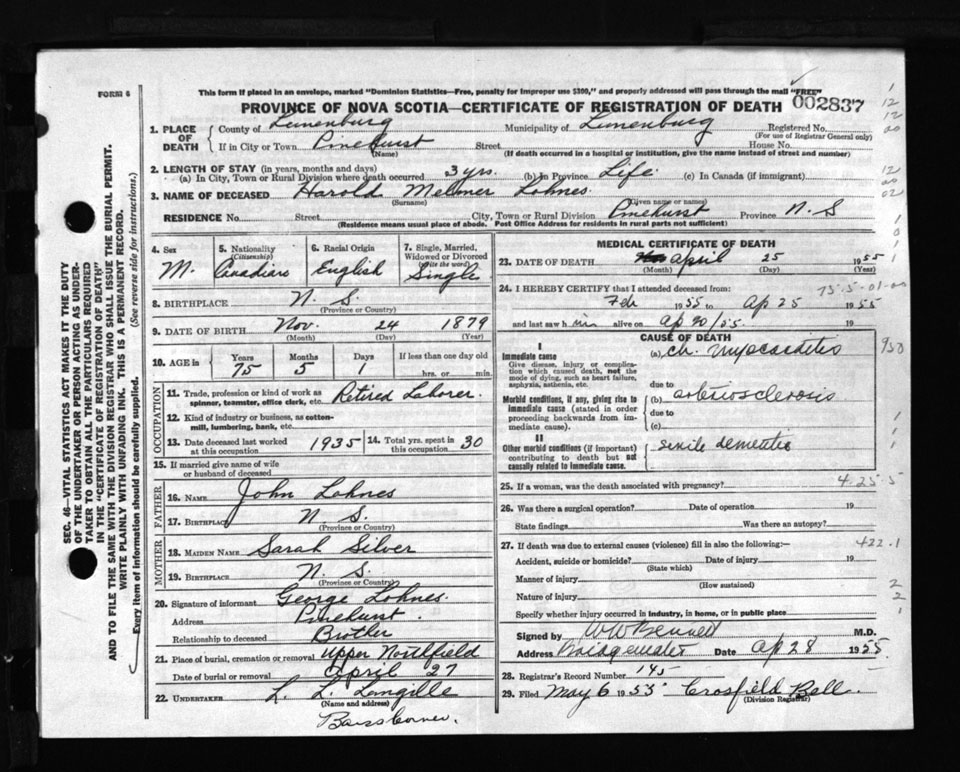 FORM 6
This form if placed in an envelope, marked "Dominion Statistics—Free, penalty for improper use $300," and properly addressed will pass through the mail "FREE"
PROVINCE OF NOVA SCOTIA—CERTIFICATE OF REGISTRATION OF DEATH 002837
1. PLACE OF DEATH County of Lunenburg Municipality of Lunenburg Registered No.
(For use of Registrar General only)
If in City or Town Pinehurst Street House No.
(Name) (If death occurred in a hospital or institution, give the name instead of street and number)
2. LENGTH OF STAY (in years, months and days)
(a) In City, Town or Rural Division where death occurred 3 yrs. (b) In Province Life (c) In Canada (if immigrant)
3. NAME OF DECEASED Harold Lohnes
(Surname) (Given name or names)
RESIDENCE No. Street City, Town or Rural Division Pinehurst Province N.S
(Residence means usual place of abode. Post Office Address for residents in rural parts not sufficient)
4. Sex M. 5. Nationality (Citizenship) Canadian 6. Racial Origin English 7. Single, Married, Widowed or Divorced (write the word) Single
8. BIRTHPLACE N. S.
(Province or Country)
9. DATE OF BIRTH Nov. 24 1879
(Month) (Day) (Year)
10. AGE in Years 75 Months 5 Days 1 If less than one day old hrs. or min.
OCCUPATION
11. Trade, profession or kind of work as spinner, teamster, office clerk, etc. Retired Laborer.
12. Kind of industry or business, as cotton-mill, lumbering, bank, etc.
13. Date deceased last worked at this occupation 1935 14. Total yrs. spent in this occupation 30
15. If married give name of wife or husband of deceased
FATHER
16. NAME John Lohnes
17. BIRTHPLACE N S.
(Province or Country)
MOTHER
18. MAIDEN NAME Sarah Silver
19. BIRTHPLACE N. S.
(Province or Country)
20. Signature of informant George Lohnes.
Address Pinehurst.
Relationship to deceased Brother
21. Place of burial, cremation or removal Upper Northfield
Date of burial or removal April 27
22. UNDERTAKER L. L. Langille
(Name and address)
MEDICAL CERTIFICATE OF DEATH
23. DATE OF DEATH April 25 1955
(Month) (Day) (Year)
24. I HEREBY CERTIFY that I attended deceased from:
Feb 1955 to Ap 25 1955
and last saw him alive on 19
CAUSE OF DEATH
I
Immediate cause
Give disease, injury or complication which caused death, not the mode of dying, such as heart failure, asphyxia, asthenia, etc.
(a) ch. myocarditis
due to
Morbid conditions, if any, giving rise to immediate cause (stated in order proceeding backwards from immediate cause).
(b) arteriosclerosis
due to
(c)
II
Other morbid conditions (if important) contributing to death but not causally related to immediate cause.
senile dementia
25. If a woman, was the death associated with pregnancy?
26. Was there a surgical operation? Date of operation 19
State findings Was there an autopsy?
27. If death was due to external causes (violence) fill in also the following:— 422.1
Accident, suicide or homicide? Date of injury 19
(State which)
Manner of injury
(How sustained)
Nature of injury
Specify whether injury occurred in industry, in home, or in public place
Signed by W W Bennett M.D.
Address Bridgewater Date Ap 28 1955
28. Registrar's Record Number 145
29. Filed May 6 1955 Crosfield Bell
(Division Registrar)
SEC. 46—VITAL STATISTICS ACT MAKES IT THE DUTY
OF THE UNDERTAKER OR PERSON ACTING AS UNDERTAKER TO OBTAIN ALL THE PARTICULARS REQUIRED
IN THE "CERTIFICATE OF REGISTRATION OF DEATH"
AND TO FILE THE SAME WITH THE DIVISION REGISTRAR WHO SHALL ISSUE THE BURIAL PERMIT.
WRITE PLAINLY WITH UNFADING INK. THIS IS A PERMANENT RECORD.
Every item of Information should be carefully supplied. (See reverse side for instructions.)